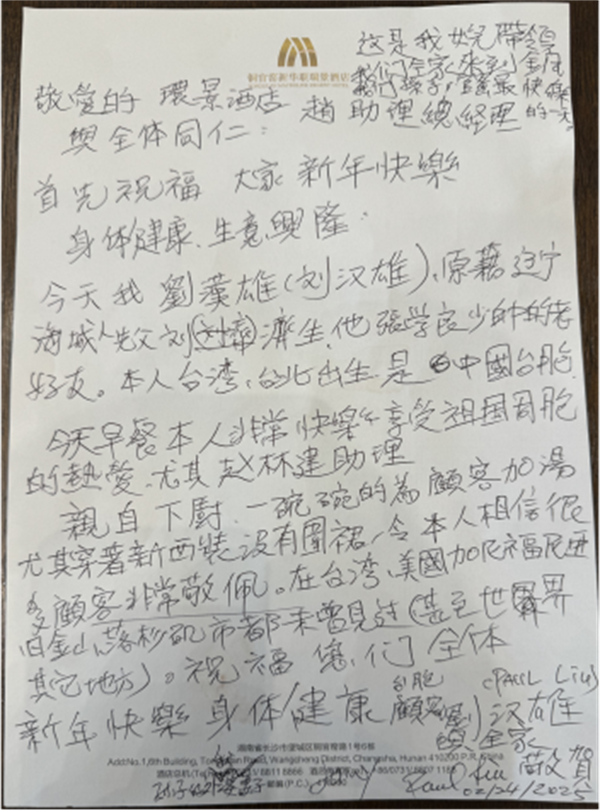 铜官窑新华联瑞景酒店
这是我女兒帶領
快樂
的一天
敬愛的 環景酒店 趙助理總經理
與全体同仁:
首先祝福 大家新年快樂
身体健康、生意興隆.
今天我劉漢雄(刘汉雄),原藉辽宁
海城人先父刘(劉)濟生,他張学良少帅的老
好友。本人台湾,台北出生是中國台胞.
今天早餐本人非常快樂享受祖国同胞
的熱愛.尤其赵林建助理
親自下廚.一碗碗的為顧客加湯
尤其穿著新西裝没有圍裙,令本人相信很
多顧客非常敬佩。在台湾、美國加尼福尼亚
旧金山、落杉矶市都未曾見过(甚至世界
其它地方)。祝福您们全体
新年快樂 身体健康 台胞 顧客(劉)汉雄 (PAUL Liu)
全家
敬賀
湖南省长沙市望城区铜官窑路1号6栋
Add:No.1,6th Building, Tongguan Road, Wangcheng District, Changsha, Hunan 410200 P.R.China
酒店总机(Tel) 8811 8666
0731) 8801 1180
邮编(P.C.)
孙子
Paul Liu
02/24/2025